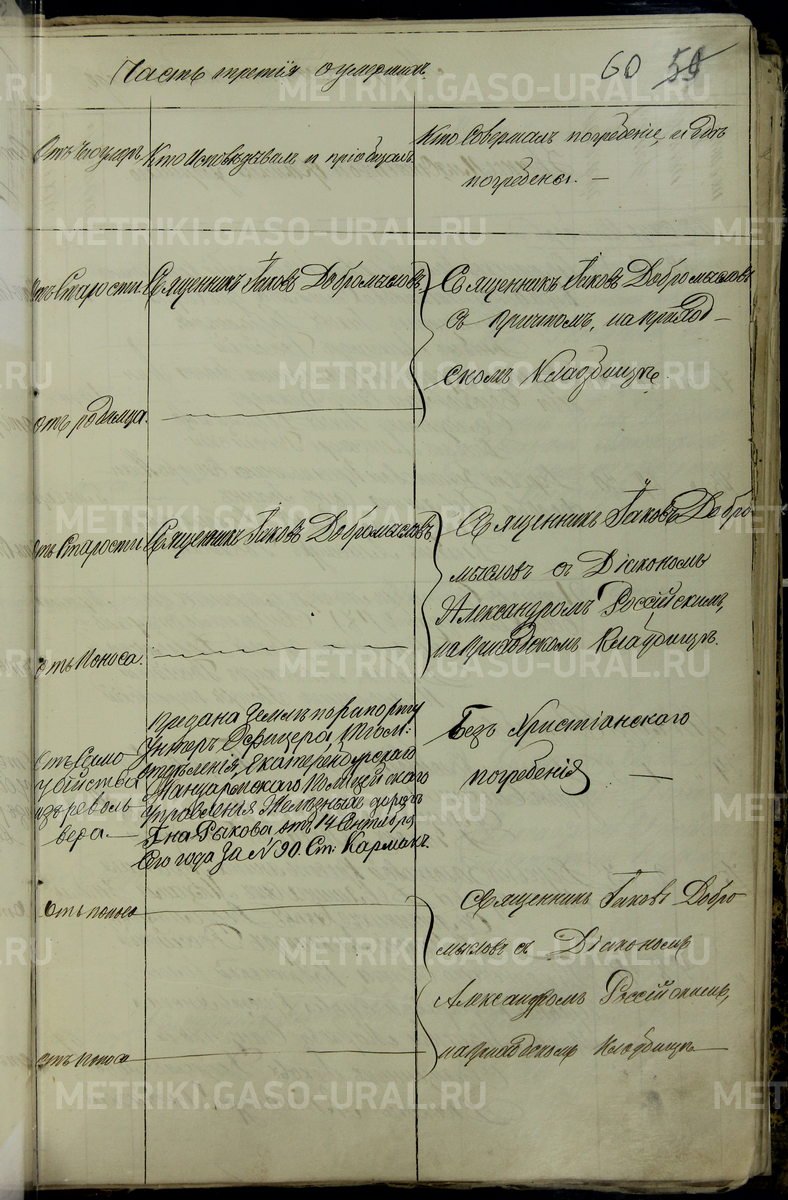 Часть третія о умершихъ.
60 59
Отъ чего умеръ
Кто исповѣдывалъ и пріобщалъ.
Кто совершалъ погребеніе, и гдѣ
погребены. —
отъ Старости
Священникъ Іаковъ Добромысловъ.
Священникъ Іаковъ Добромысловъ
съ причтомъ, на приход-
скомъ Кладбищѣ.
отъ родимца.
отъ Старости
Священникъ Іаковъ Добромысловъ.
Священникъ Іаковъ Добро
мысловъ съ Діакономъ
Александромъ Россійскимъ,
на приходскомъ Кладбищѣ.
отъ Поноса.
Отъ Само
убійства
изъ револь
вера. —
предана Землѣ по рапорту
Унтеръ Офицера,
отдѣленія, Екатеринбургскаго
Жандармскаго Полицейскаго
Управленія Желѣзныхъ дорогъ
Рыкова отъ 14 Сентября
Сего года За № 90. Ст. Кармакъ.
Безъ Христіанскаго
погребенія —
Отъ поноса
Священникъ Іаковъ Добро
мысловъ съ Діакономъ
Александромъ Россійскимъ,
на приходскомъ Кладбищѣ
отъ поноса
METRIKI.GASO-URAL.RU